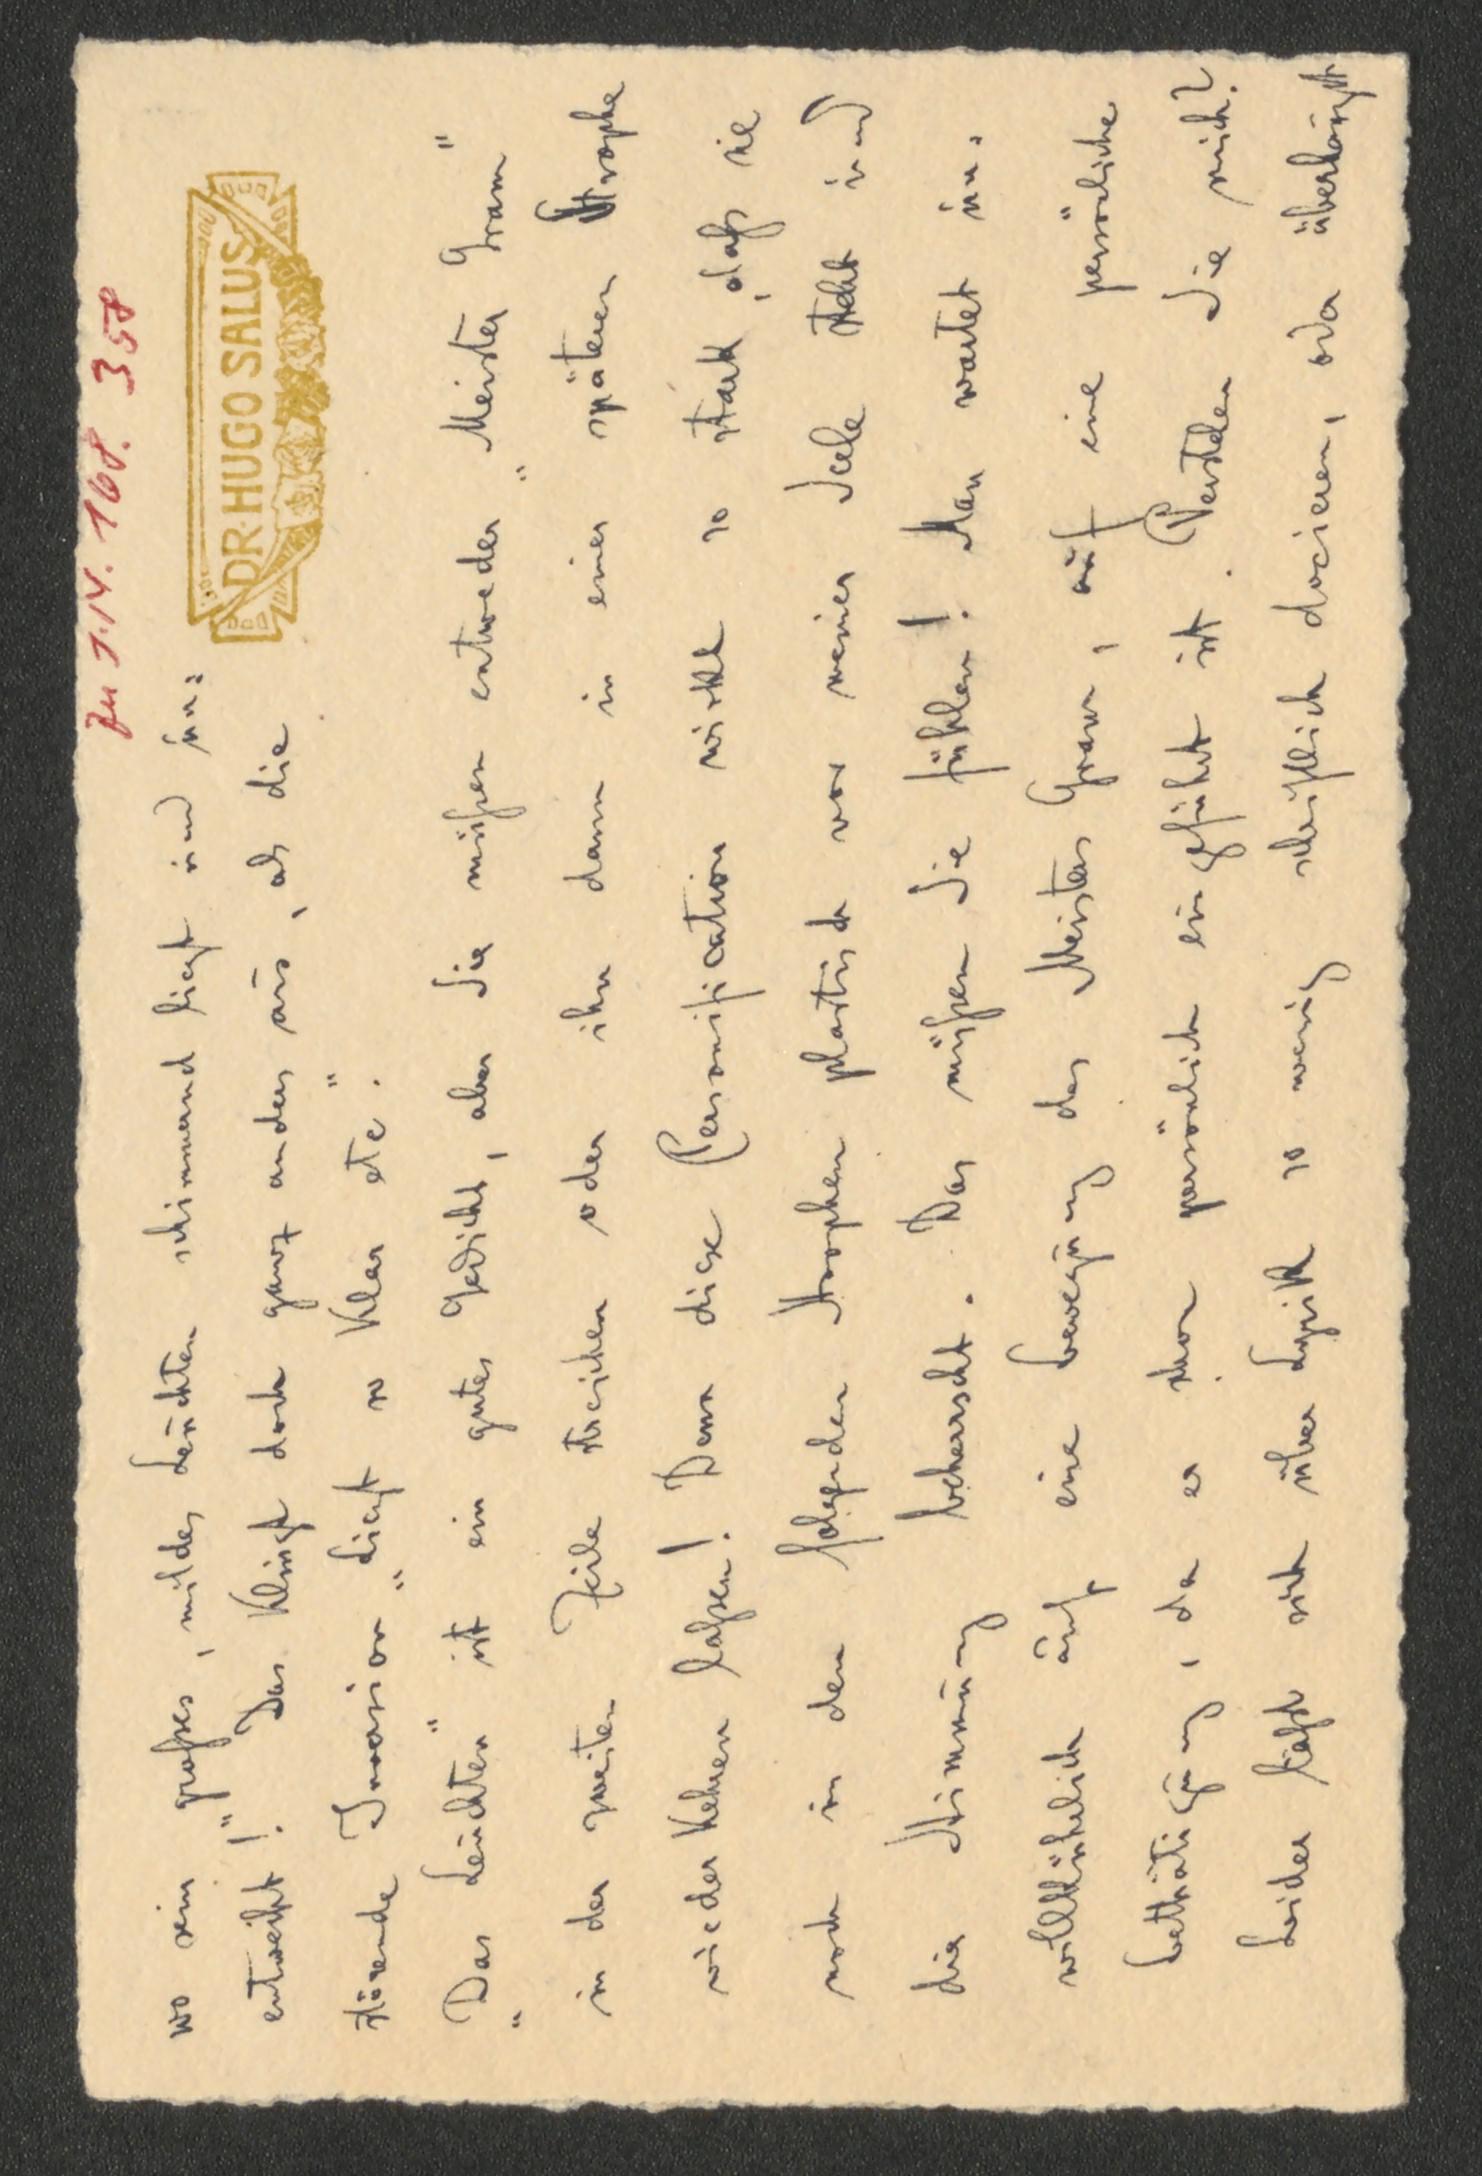 Zu J. 14. 168. 358
DR. HUGO SALUS
wo ein großes, mildes Leuchten schimmernd liegt und un=
entweiht!" Das klingt doch ganz anders aus, als die
störende Inversion „liegt so klar etc".
„Das Leuchten" ist ein gutes Gedicht, aber Sie müßen entweder „Meister Gram"
in der zweiten Zeile streichen oder ihn dann in einer späteren Strophe
wiederkehren laßen! Denn diese Personification wirkt so stark, daß sie
noch in den folgenden Strophen plastisch vor meiner Seele steht und
die Stimmung beherrscht. Das müßen Sie fühlen! Man wartet un=
willkürlich auf eine Bewegung des Meisters Gram, auf eine persönliche
Bethätigung, da er schon persönlich eingeführt ist. Verstehen Sie mich?
Leider läßt sich über Lyrik so wenig schriftlich docieren, oder überhaupt